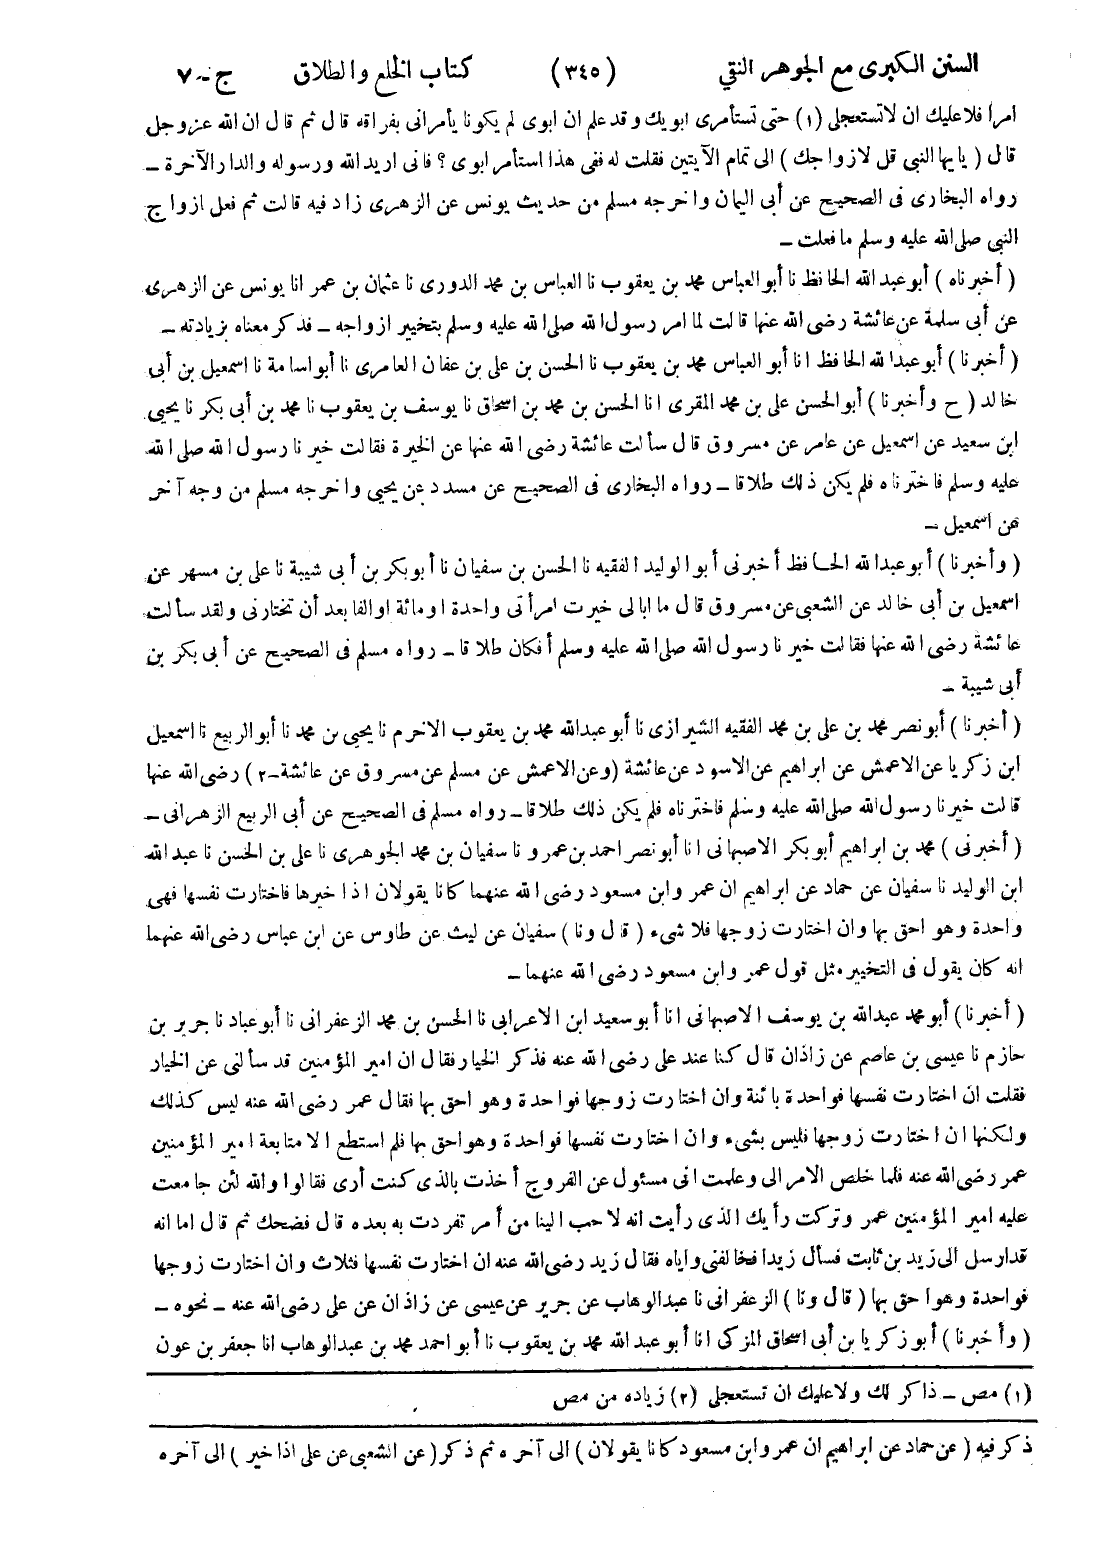 السنن الكبرى مع الجوهر النقي (٣٤٥) كتاب الخلع والطلاق ج-٧
امرا فلا عليك ان لا تستعجلى (١) حتى تستأمرى ابويك وقد علم ان ابوى لم يكونا يأمرانى بفراقه قال ثم قال ان الله عزوجل
قال (يايها النبى قل لازواجك) الى تمام الآيتين فقلت له ففى هذا استأمر ابوى؟ فانى اريد الله ورسوله والدار الآخرة ـ
رواه البخارى فى الصحيح عن أبى اليمان واخرجه مسلم من حديث يونس عن الزهرى زاد فيه قالت ثم فعل ازواج
النبى صلى الله عليه وسلم ما فعلت ـ
(أخبرناه) أبو عبد الله الحافظ نا أبو العباس محمد بن يعقوب نا العباس بن محمد الدورى نا عثمان بن عمر انا يونس عن الزهرى
عن أبى سلمة عن عائشة رضى الله عنها قالت لما امر رسول الله صلى الله عليه وسلم بتخيير ازواجه ـ فذكر معناه بزيادته ـ
(أخبرنا) أبو عبد الله الحافظ انا أبو العباس محمد بن يعقوب نا الحسن بن على بن عفان العامرى نا أبو اسامة نا اسمعيل بن أبى
خالد (ح وأخبرنا) أبو الحسن على بن محمد المقرى انا الحسن بن محمد بن اسحاق نا يوسف بن يعقوب نا محمد بن أبى بكر نا يحيى
ابن سعيد عن اسمعيل عن عامر عن مسروق قال سألت عائشة رضى الله عنها عن الخيرة فقالت خيرنا رسول الله صلى الله
عليه وسلم فاخترناه فلم يكن ذلك طلاقا ـ رواه البخارى فى الصحيح عن مسدد عن يحيى واخرجه مسلم من وجه آخر
عن اسمعيل ـ
(وأخبرنا) أبو عبد الله الحافظ أخبرنى أبو الوليد الفقيه نا الحسن بن سفيان نا أبو بكر بن أبى شيبة نا على بن مسهر عن
اسمعيل بن أبى خالد عن الشعبى عن مسروق قال ما ابالى خيرت امرأتى واحدة او مائة او الفا بعد أن تختارنى ولقد سألت
عائشة رضى الله عنها فقالت خيرنا رسول الله صلى الله عليه وسلم أفكان طلاقا ـ رواه مسلم فى الصحيح عن أبى بكر بن
أبى شيبة ـ
(أخبرنا) أبو نصر محمد بن على بن محمد الفقيه الشيرازى نا أبو عبد الله محمد بن يعقوب الاخرم نا يحيى بن محمد نا أبو الربيع نا اسمعيل
ابن زكريا عن الاعمش عن ابراهيم عن الاسود عن عائشة (وعن الاعمش عن مسلم عن مسروق عن عائشة-٢) رضى الله عنها
قالت خيرنا رسول الله صلى الله عليه وسلم فاخترناه فلم يكن ذلك طلاقا ـ رواه مسلم فى الصحيح عن أبى الربيع الزهرانى ـ
(أخبرنى) محمد بن ابراهيم أبو بكر الاصبهانى انا أبو نصر احمد بن عمرو نا سفيان بن محمد الجوهرى نا على بن الحسن نا عبد الله
ابن الوليد نا سفيان عن حماد عن ابراهيم ان عمر وابن مسعود رضى الله عنهما كانا يقولان اذا خيرها فاختارت نفسها فهى
واحدة وهو احق بها وان اختارت زوجها فلا شىء (قال ونا) سفيان عن ليث عن طاوس عن ابن عباس رضى الله عنهما
انه كان يقول فى التخيير مثل قول عمر وابن مسعود رضى الله عنهما ـ
(أخبرنا) أبو محمد عبد الله بن يوسف الاصبهانى انا أبو سعيد ابن الاعرابى نا الحسن بن محمد الزعفرانى نا أبو عباد نا جرير بن
حازم نا عيسى بن عاصم عن زاذان قال كنا عند على رضى الله عنه فذكر الخيار فقال ان امير المؤمنين قد سألنى عن الخيار
فقلت ان اختارت نفسها فواحدة بائنة وان اختارت زوجها فواحدة وهو احق بها فقال عمر رضى الله عنه ليس كذلك
ولكنها ان اختارت زوجها فليس بشىء وان اختارت نفسها فواحدة وهو احق بها فلم استطع الا متابعة امير المؤمنين
عمر رضى الله عنه فلما خلص الامر الى وعلمت انى مسئول عن الفروج أخذت بالذى كنت أرى فقالوا والله لئن جامعت
عليه امير المؤمنين عمر وتركت رأيك الذى رأيت انه لاحب الينا من أمر تفردت به بعده قال فضحك ثم قال اما انه
قد ارسل الى زيد بن ثابت فسأل زيدا فخالفنى واياه فقال زيد رضى الله عنه ان اختارت نفسها فثلاث وان اختارت زوجها
فواحدة وهو احق بها (قال ونا) الزعفرانى نا عبد الوهاب عن جرير عن عيسى عن زاذان عن على رضى الله عنه ـ نحوه ـ
(وأخبرنا) أبو زكريا بن أبى اسحاق المزكى انا أبو عبد الله محمد بن يعقوب نا أبو احمد محمد بن عبد الوهاب انا جعفر بن عون
(١) مص ـ ذاكر لك ولا عليك ان تستعجلى (٢) زياده من مص
ذكر فيه (عن حماد عن ابراهيم ان عمر وابن مسعود كانا يقولان) الى آخره ثم ذكر (عن الشعبى عن على اذا خير) الى آخره